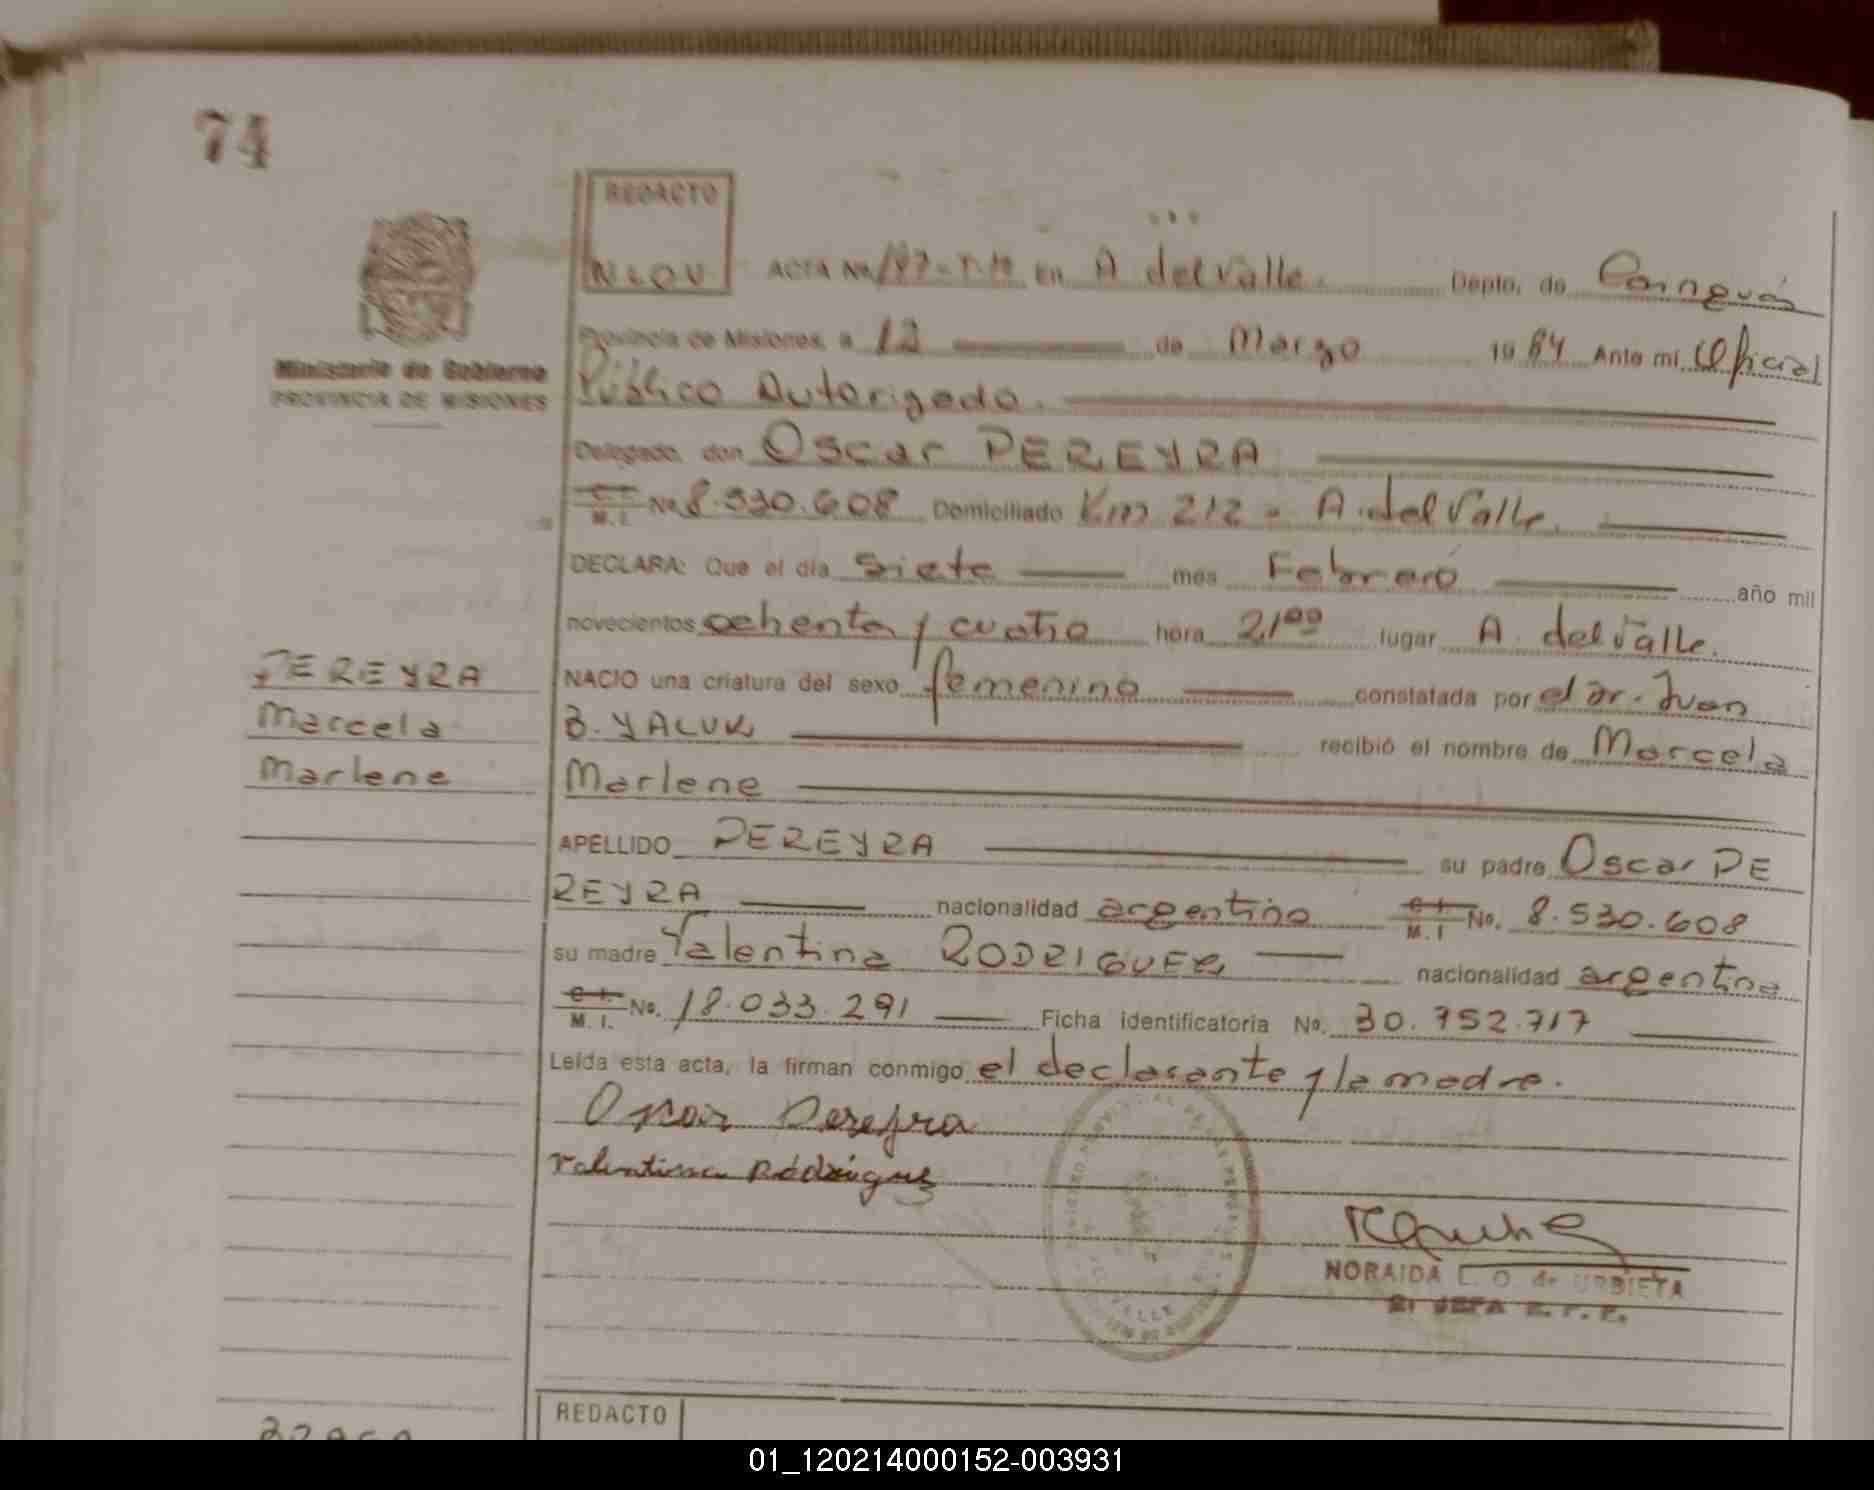 74
REDACTO
N.L.O.V.
ACTA No. 147-T.M en A del Valle. Depto. de Cainguás
Ministerio de Gobierno
PROVINCIA DE MISIONES
Provincia de Misiones, a 12 de Marzo 1984 Ante mi Oficial
Público Autorizado.
Delegado, don Oscar PEREYRA
C. I. M. I. No. 8.530.608 Domiciliado Km 212 - A. del Valle.
DECLARA: Que el día siete mes Febrero año mil
novecientos ochenta y cuatro hora 21⁰⁰ lugar A. del Valle.
PEREYRA
Marcela
Marlene
NACIO una criatura del sexo femenino constatada por el Dr. Juan
B. YALUK recibió el nombre de Marcela
Marlene
APELLIDO PEREYRA su padre Oscar PE
REYRA nacionalidad argentino C. I. M. I No. 8.530.608
su madre Valentina RODRIGUEZ nacionalidad argentina
C. I. M. I. No. 18.033.291 Ficha identificatoria No. 30.752.717
Leída esta acta, la firman conmigo el declarante y la madre.
Oscar Pereyra
Valentina Rodrigues
VALLE
NORAIDA L. O. de URBIETA
JEFA R. P. P.
REDACTO
01_120214000152-003931